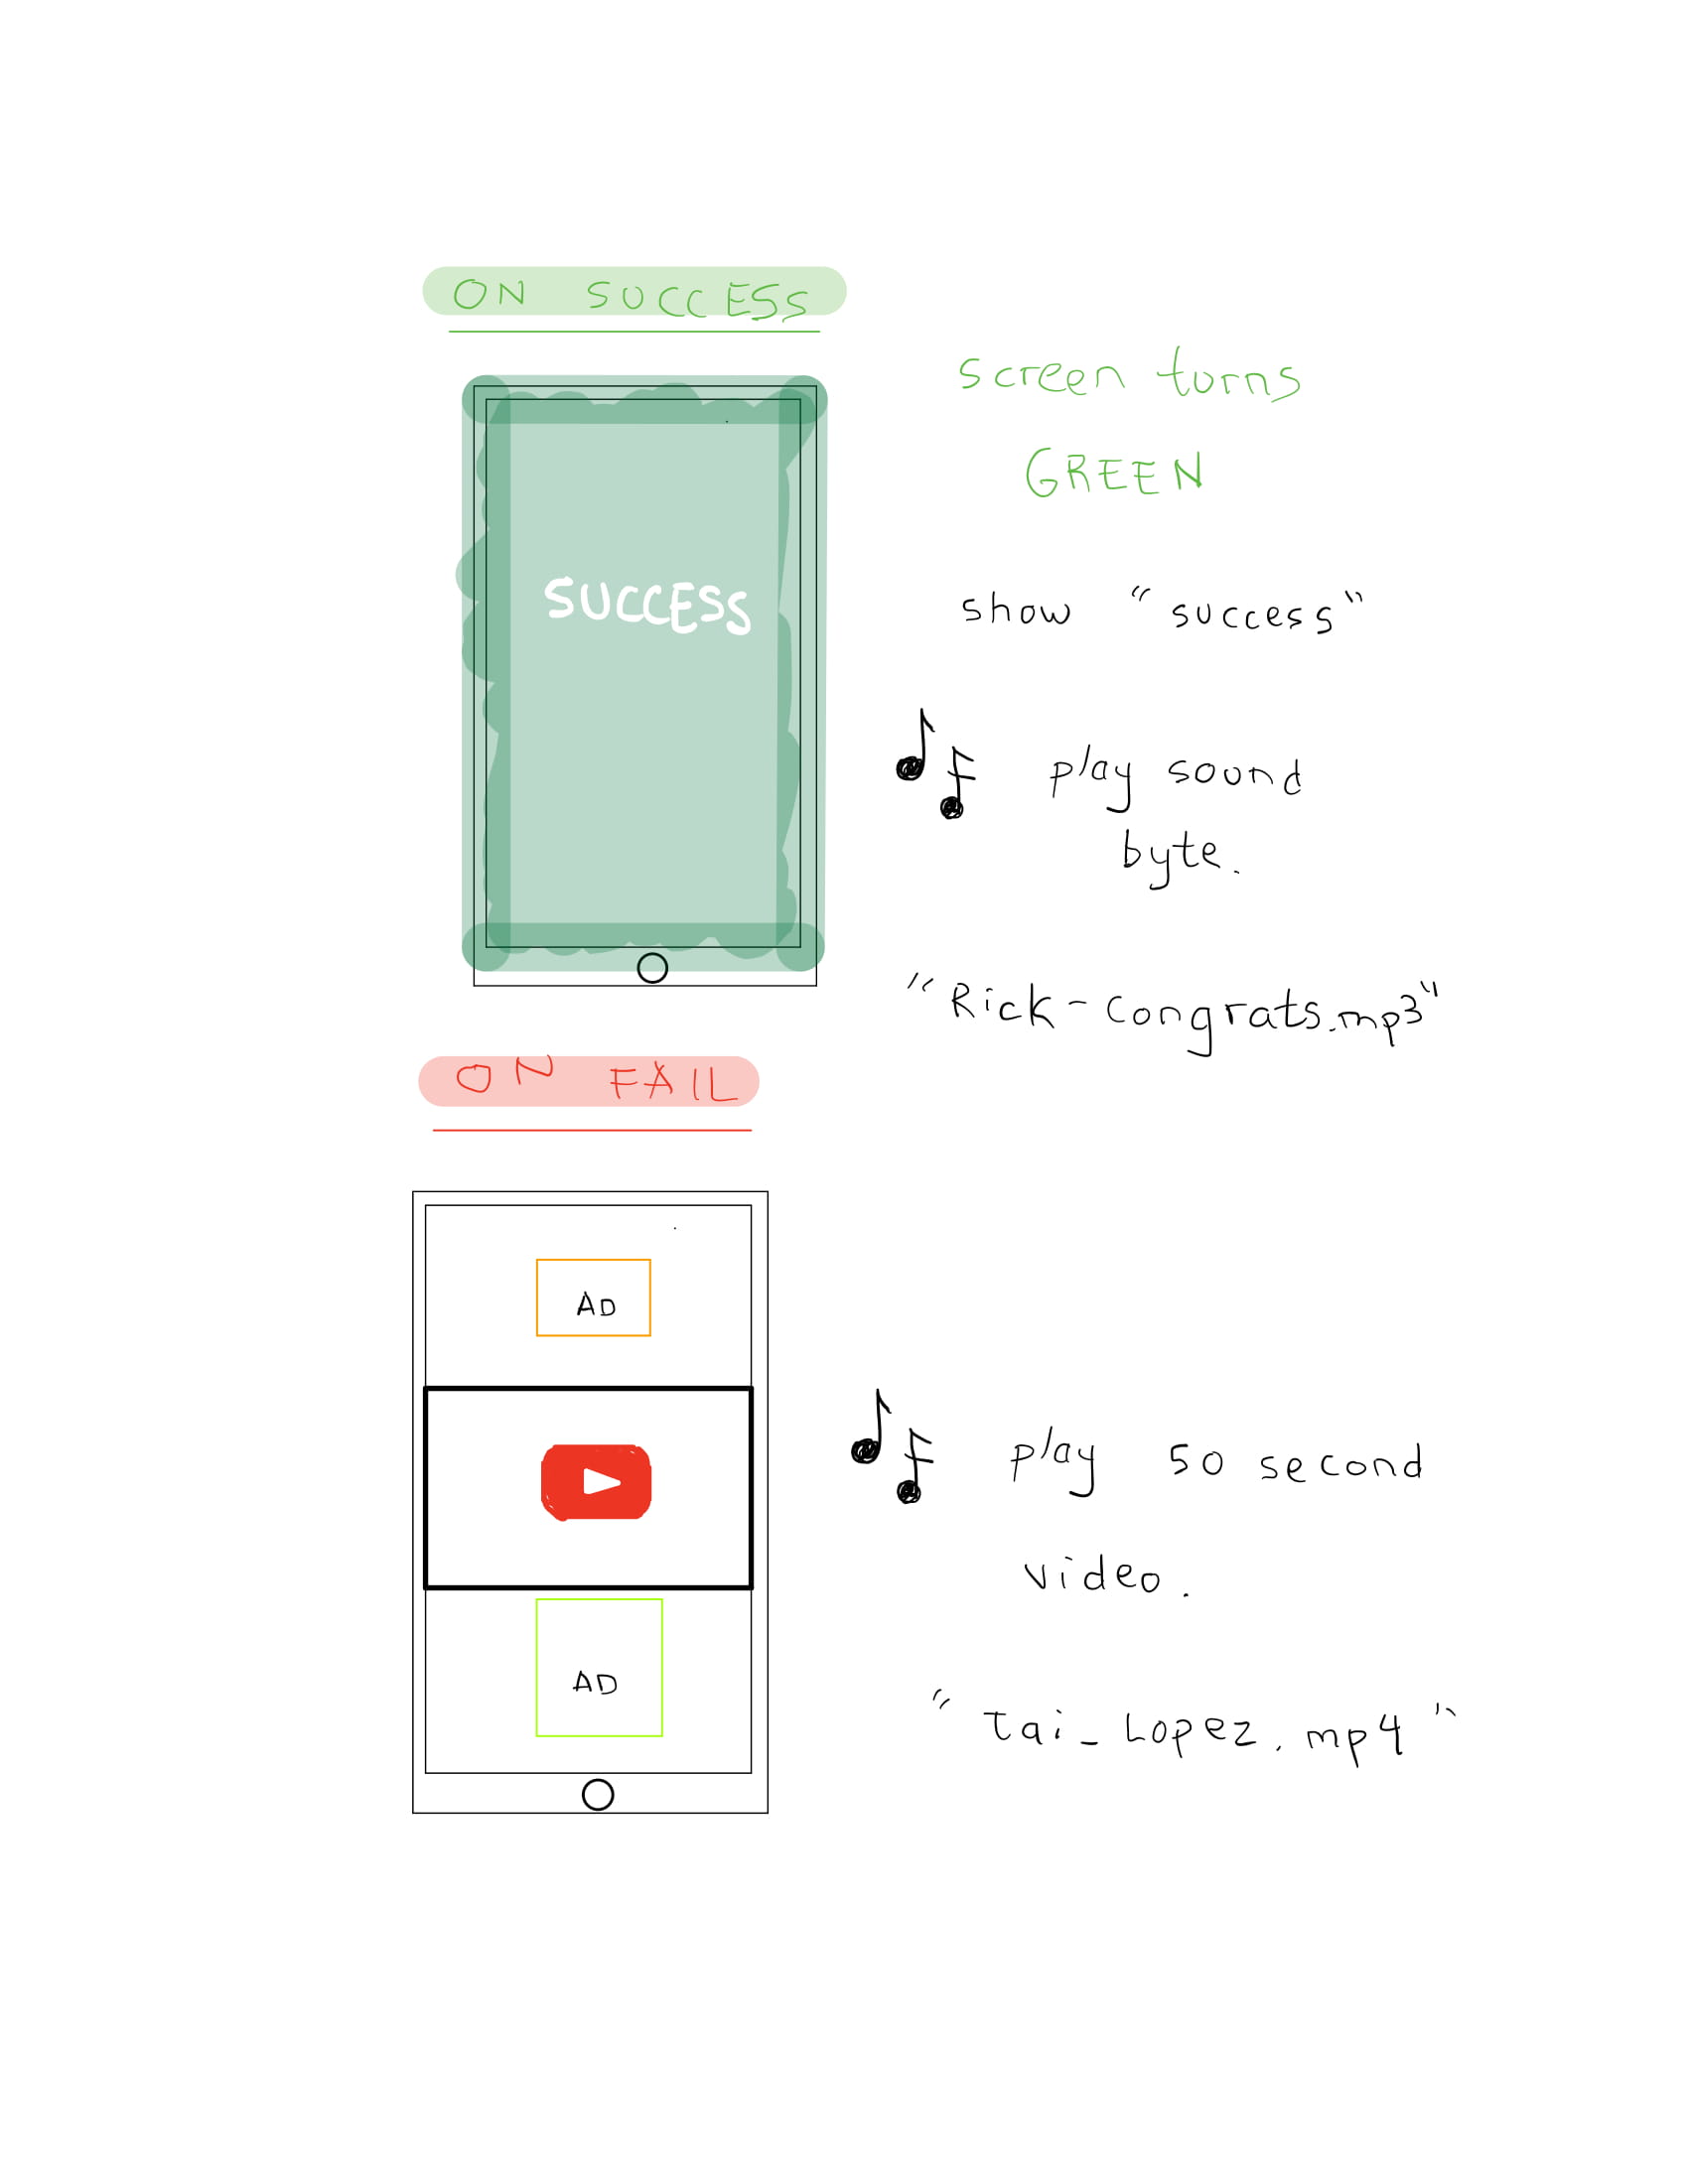 ON SUCCESS
screen turns
GREEN
SUCCESS
show "success"
play sound
byte.
"Rick-Congrats.mp3"
ON FAIL
AD
play 50 second
video.
AD
"tai_Lopez.mp4"